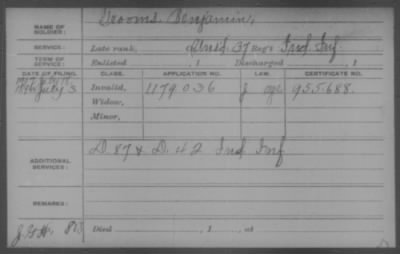 NAME OF SOLDIER: Benjamin,
SERVICE: Late rank, Reg't Ind. Inf.
TERM OF SERVICE: Enlisted , 1 Discharged , 1
DATE OF FILING. CLASS. APPLICATION NO. LAW. CERTIFICATE NO.
July 3 Invalid, 1179036 955688.
Widow,
Minor,
ADDITIONAL SERVICES: D 87 & D. 42 Ind Inf
REMARKS:
Died , 1 , at